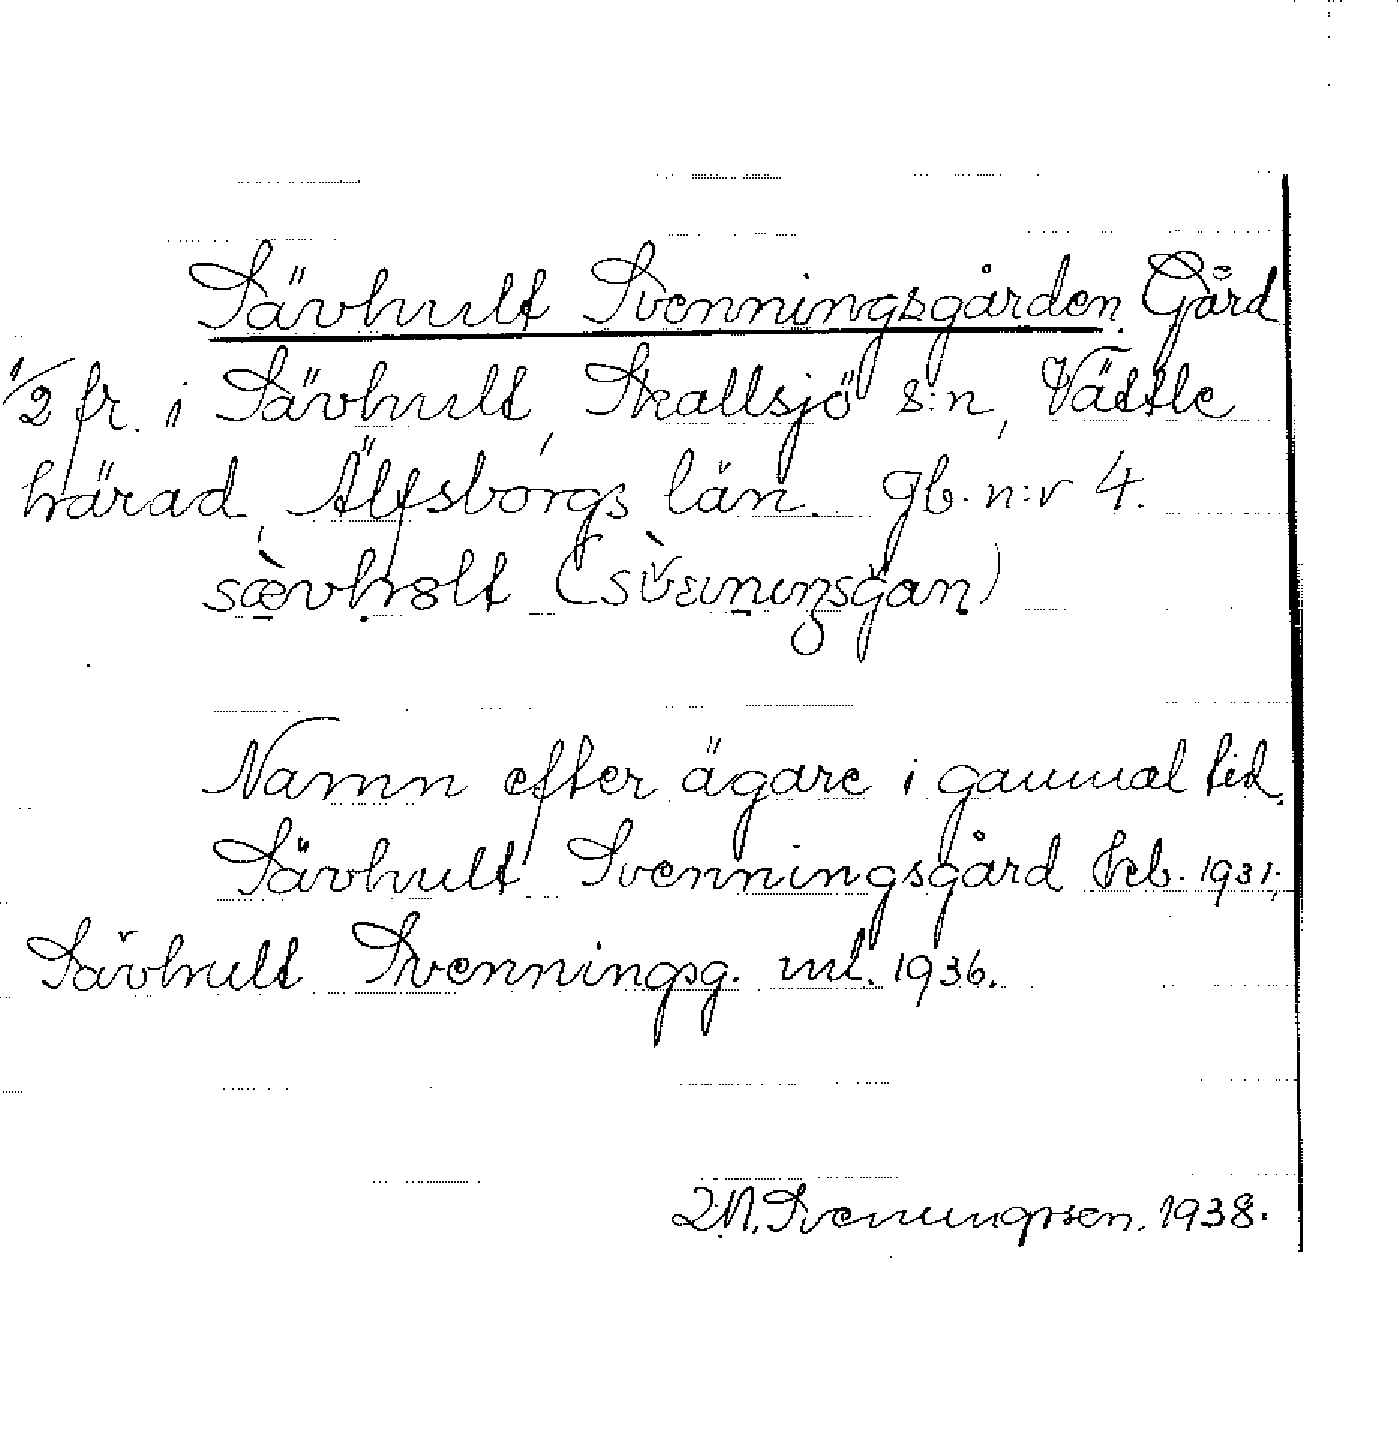 Sävhult Svenningsgården. Gård
1/2 fr. i Sävhult, Skallsjö s:n, Vättle
härad, Älfsborgs län. Gb. n:r 4.
sæ̀vhɷlt (sv̀enıŋsgan)
Namn efter ägare i gammal tid.
Sävhult Svenningsgård Feb. 1931;
Sävhult Svenningsg. ml. 1936.
Svenungsson. 1938.